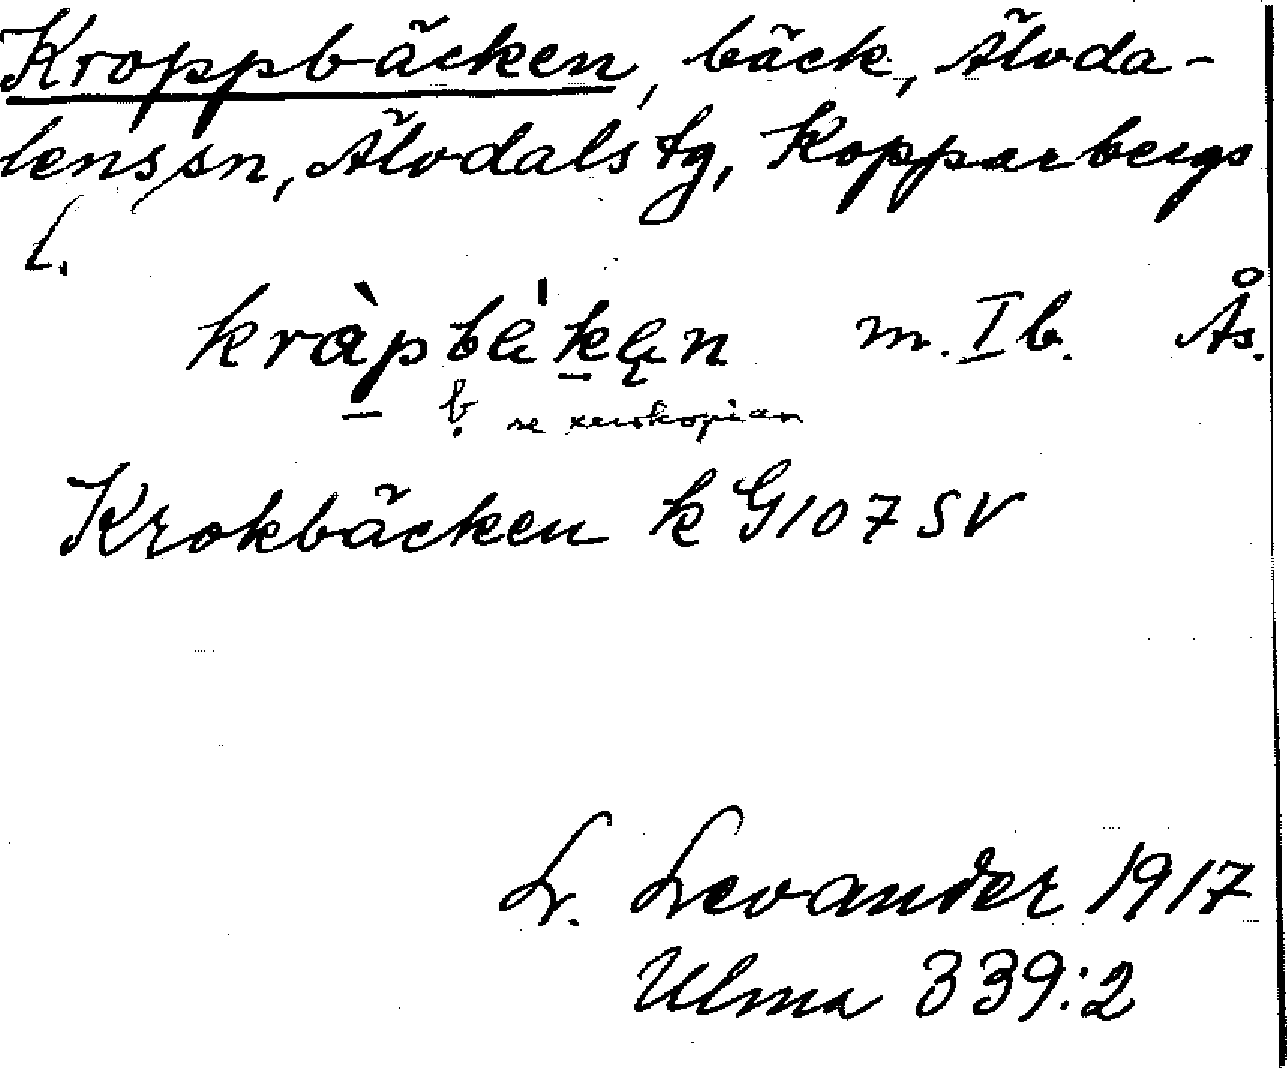 Kroppbäcken, bäck, Älvda-
lens sn, Älvdals tg, Kopparbergs
l.
kràpbä'kęn m. I b. Ås.
b se xerokopian
Krokbäcken k G107 SV
L. Levander 1917
Ulma 339:2